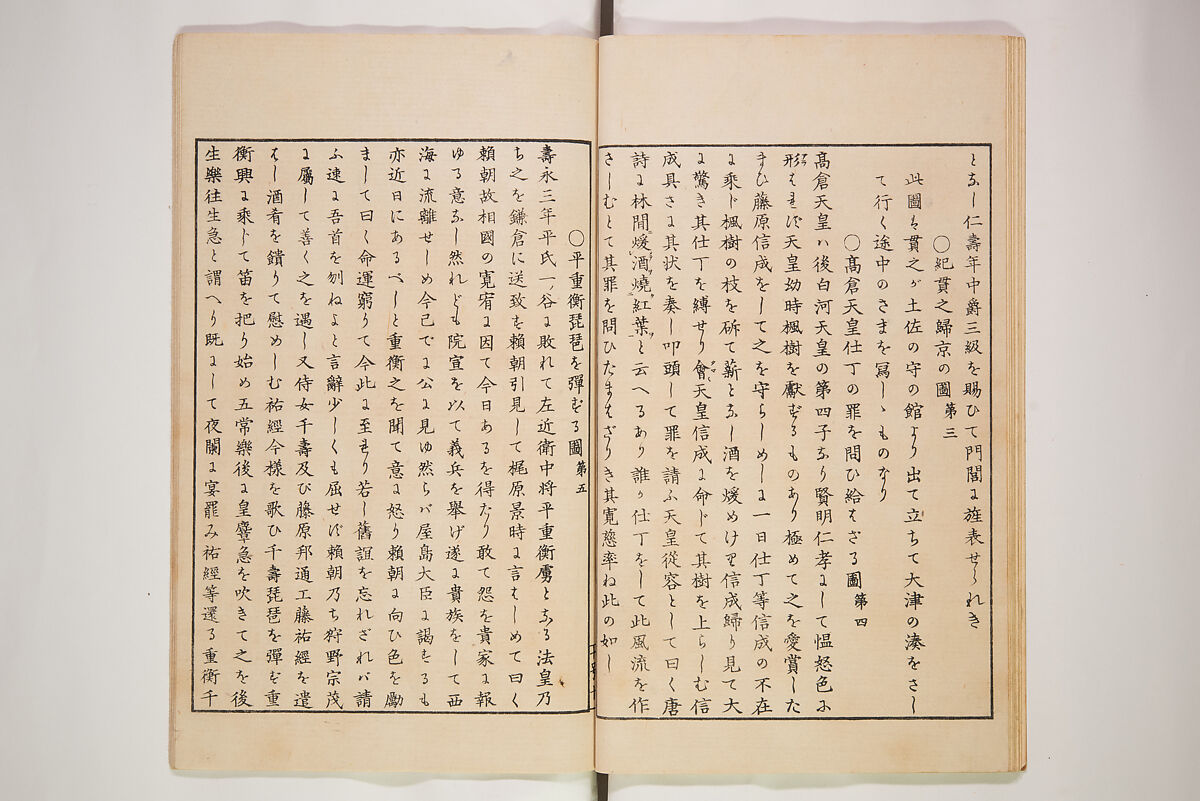 となし仁壽年中爵三級を賜ひて門閭に旌表せられき
〇紀貫之歸京の圖 第三
此圖は貫之が土佐の守の館より出て立ちて大津の湊をさし
て行く途中のさまを冩しゝものなり
〇髙倉天皇仕丁の罪を問ひ給はざる圖 第四
髙倉天皇ハ後白河天皇の第四子なり賢明仁孝にして愠怒色に
形はれず天皇幼時楓樹を獻ずるものあり極めて之を愛賞した
まひ藤原信成をして之を守らしめしに一日仕丁等信成の不在
に乘じ楓樹の枝を斫て薪となし酒を煖めけり信成歸り見て大
に驚き其仕丁を縛せり會天皇信成に命じて其樹を上らしむ信
成具さに其状を奏し叩頭して罪を請ふ天皇從容として曰く唐
詩に林間煖酒燒紅葉と云へるあり誰か仕丁をして此風流を作
さしむとて其罪を問ひたまはざりき其寛慈率ね此の如し
〇平重衡琵琶を彈ずる圖 第五
壽永三年平氏一ノ谷に敗れて左近衛中将平重衡虜となる法皇乃
ち之を鎌倉に送致す賴朝引見して梶原景時に言はしめて曰く
賴朝故相國の寛宥に因て今日あるを得たり敢て怨を貴家に報
ゆる意なし然れども院宣を以て義兵を舉げ遂に貴族をして西
海に流離せしめ今已でに公に見ゆ然らバ屋島大臣に謁するも
亦近日にあるべしと重衡之を聞て意に怒り賴朝に向ひ色を勵
まして曰く命運窮りて今此に至れり若し舊誼を忘れざれバ請
ふ速に吾首を刎ねよと言辭少しくも屈せず賴朝乃ち狩野宗茂
に屬して善く之を遇し又侍女千壽及び藤原邦通工藤祐經を遣
はし酒肴を饋りて慰めしむ祐經今様を歌ひ千壽琵琶を彈ず重
衡興に乘じて笛を把り始め五常樂後に皇麞急を吹きて之を後
生樂往生急と謂へり既にして夜闌に宴罷み祐經等還る重衡千